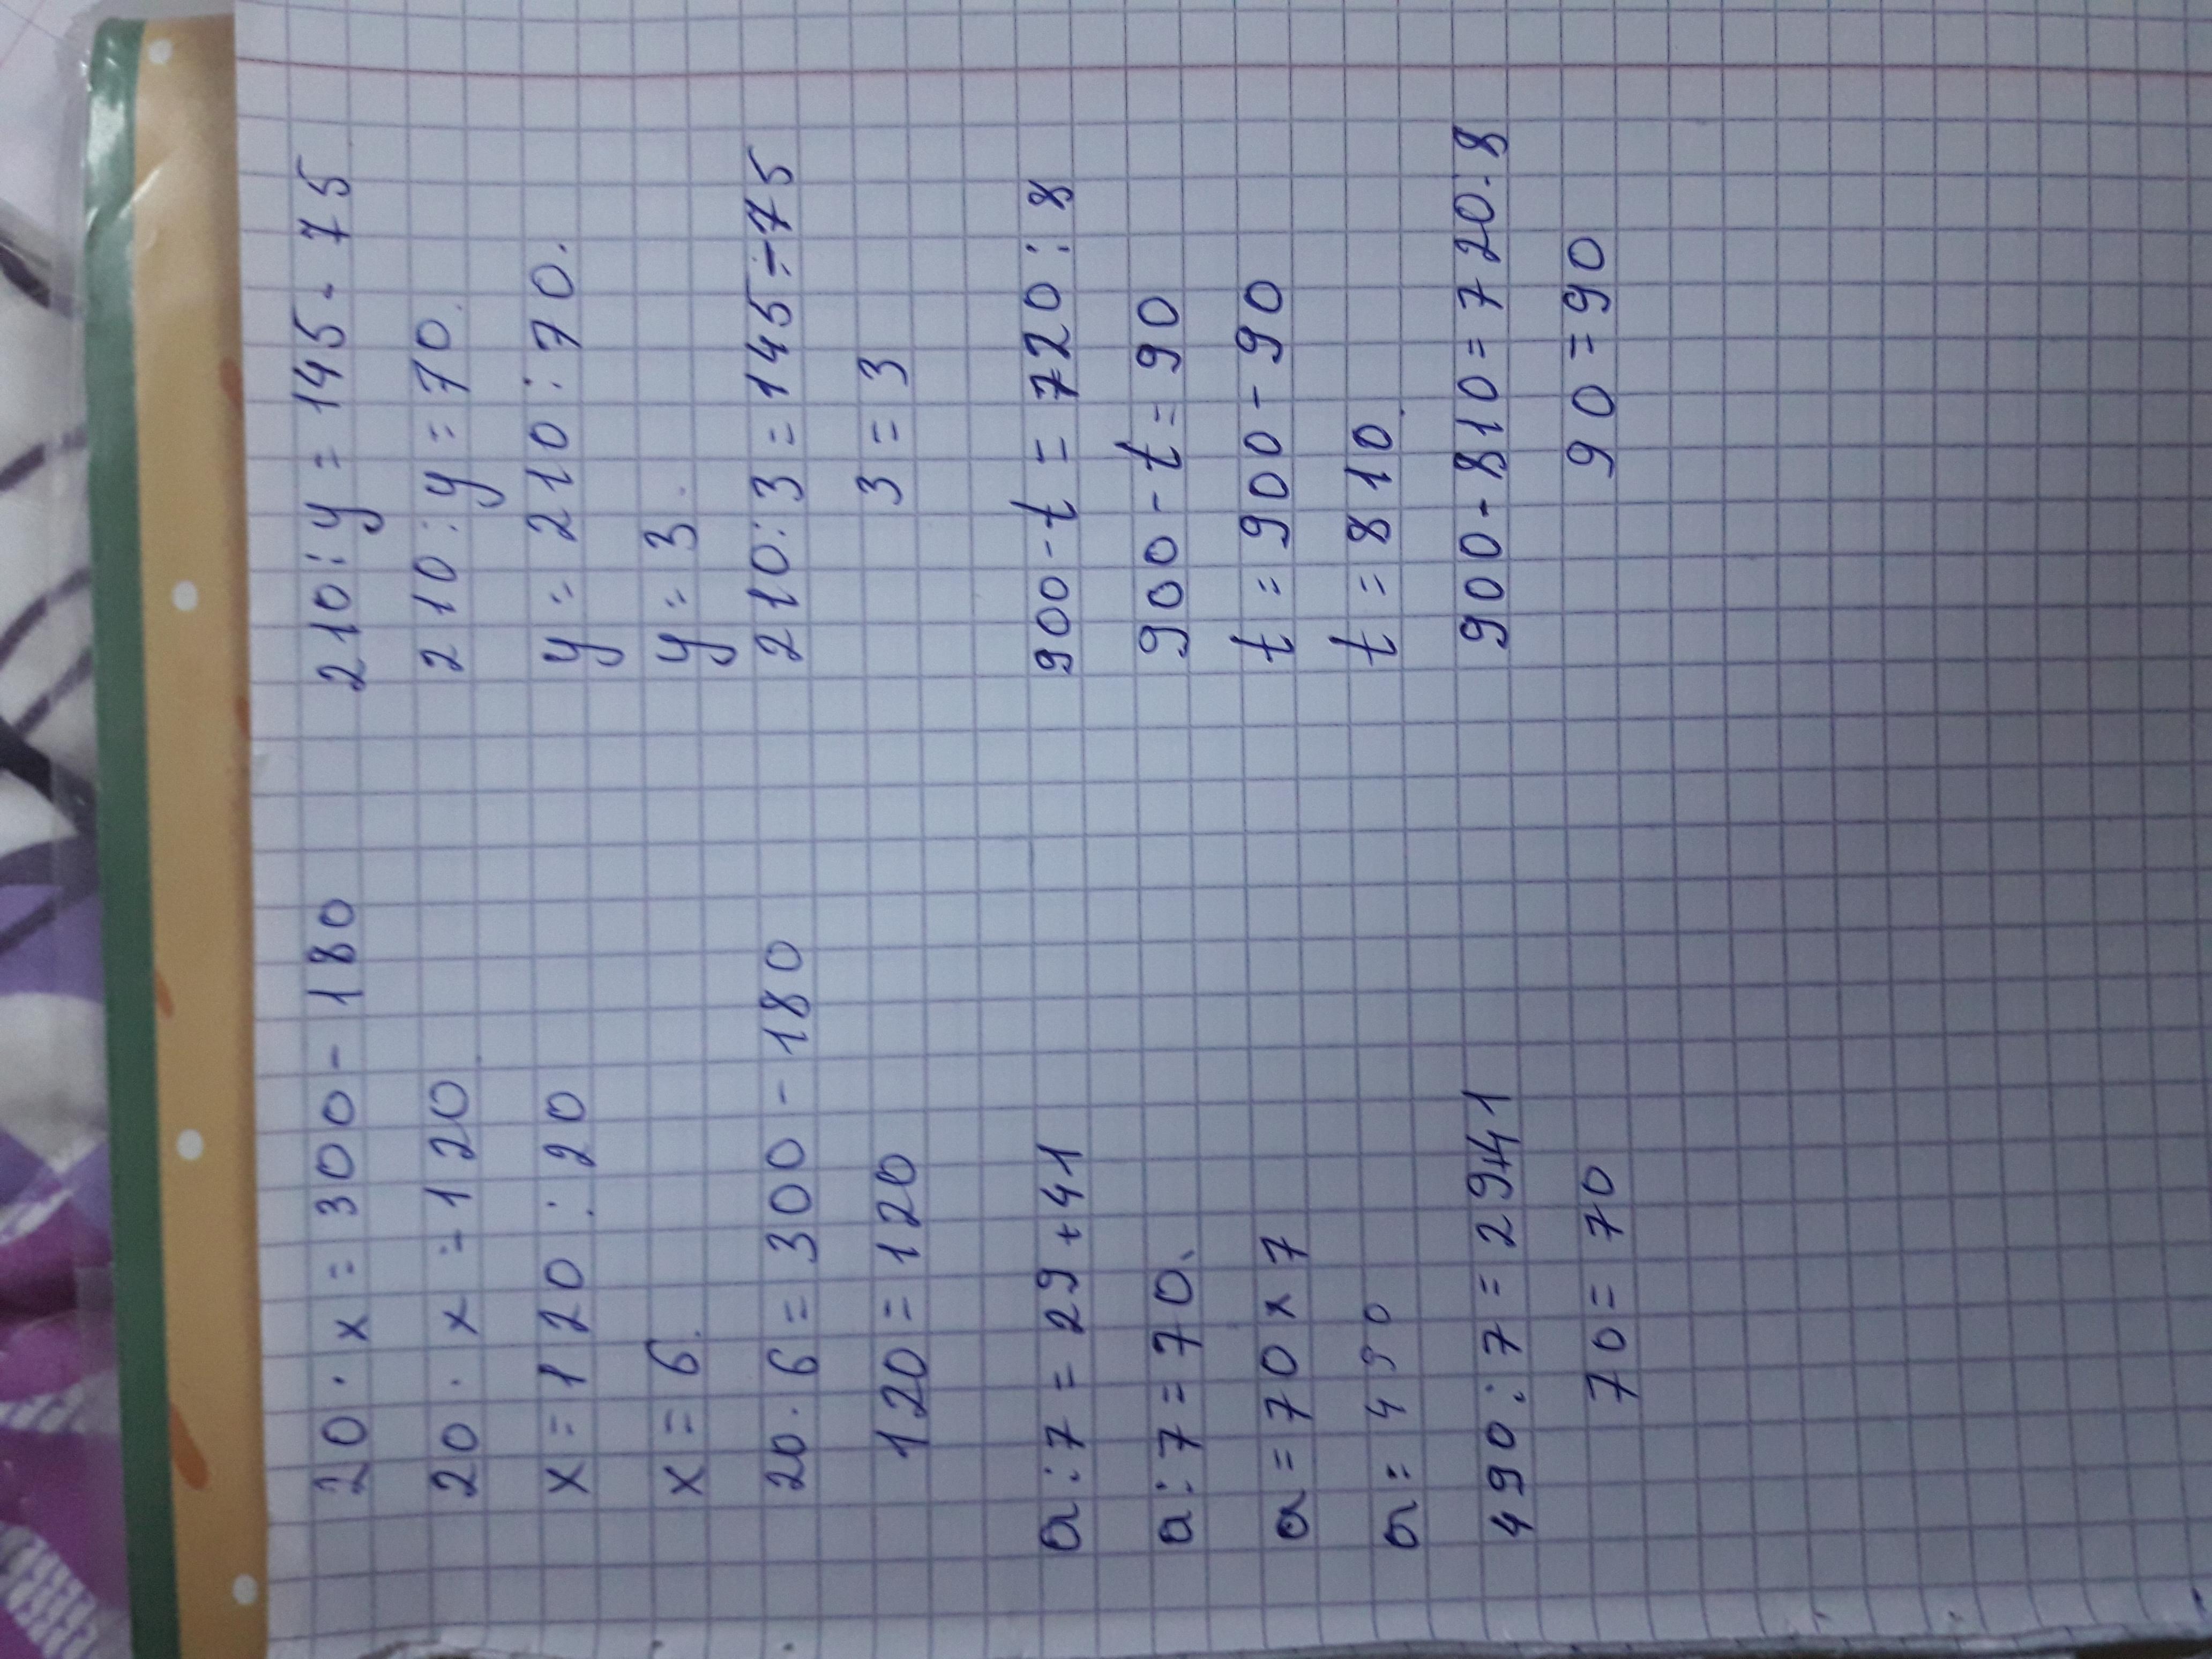 20 · x = 300 - 180
20 · x = 120
x = 120 : 20
x = 6.
20 · 6 = 300 - 180
120 = 120
210 : y = 145 - 75
210 : y = 70.
y = 210 : 70.
y = 3.
210 : 3 = 145 - 75
3 = 3
a : 7 = 29 + 41
a : 7 = 70.
a = 70 x 7
a = 490
490 : 7 = 29+41
70 = 70
900 - t = 720 : 8
900 - t = 90
t = 900 - 90
t = 810.
900 - 810 = 720 : 8
90 = 90